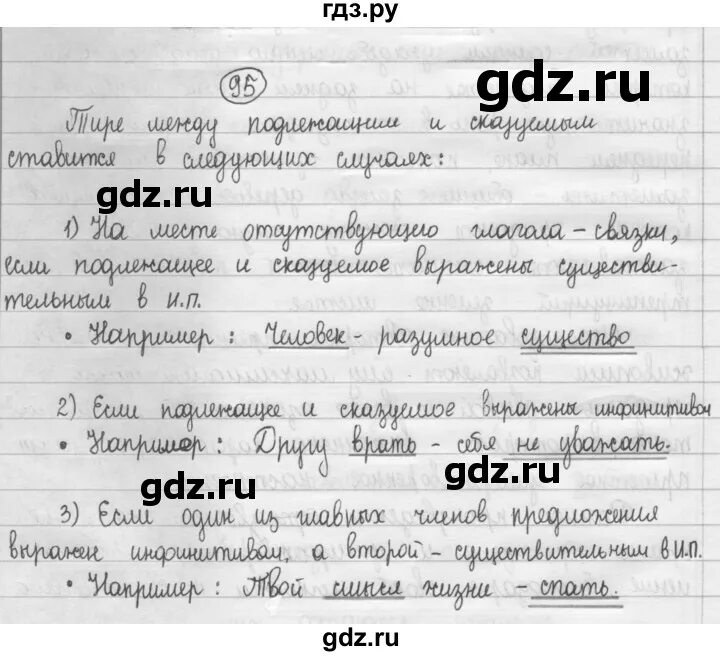 гдз.ру
95
gdz.ru
Тире между подлежащим и сказуемым
ставится в следующих случаях:
gdz.ru
1) На месте отсутствующего глагола - связки,
если подлежащее и сказуемое выражены существи-
тельным в И.П.
gdz.ru
• Например: Человек - разумное существо
2) Если подлежащее и сказуемое выражены инфинитивом
• Например: Другу врать - себя не уважать.
gdz.ru
gdz.ru
3) Если один из главных членов предложения
выражен инфинитивом, а второй - существительным в И.П.
gdz.ru
• Например: Твой смысл жизни - спать.
gdz.ru